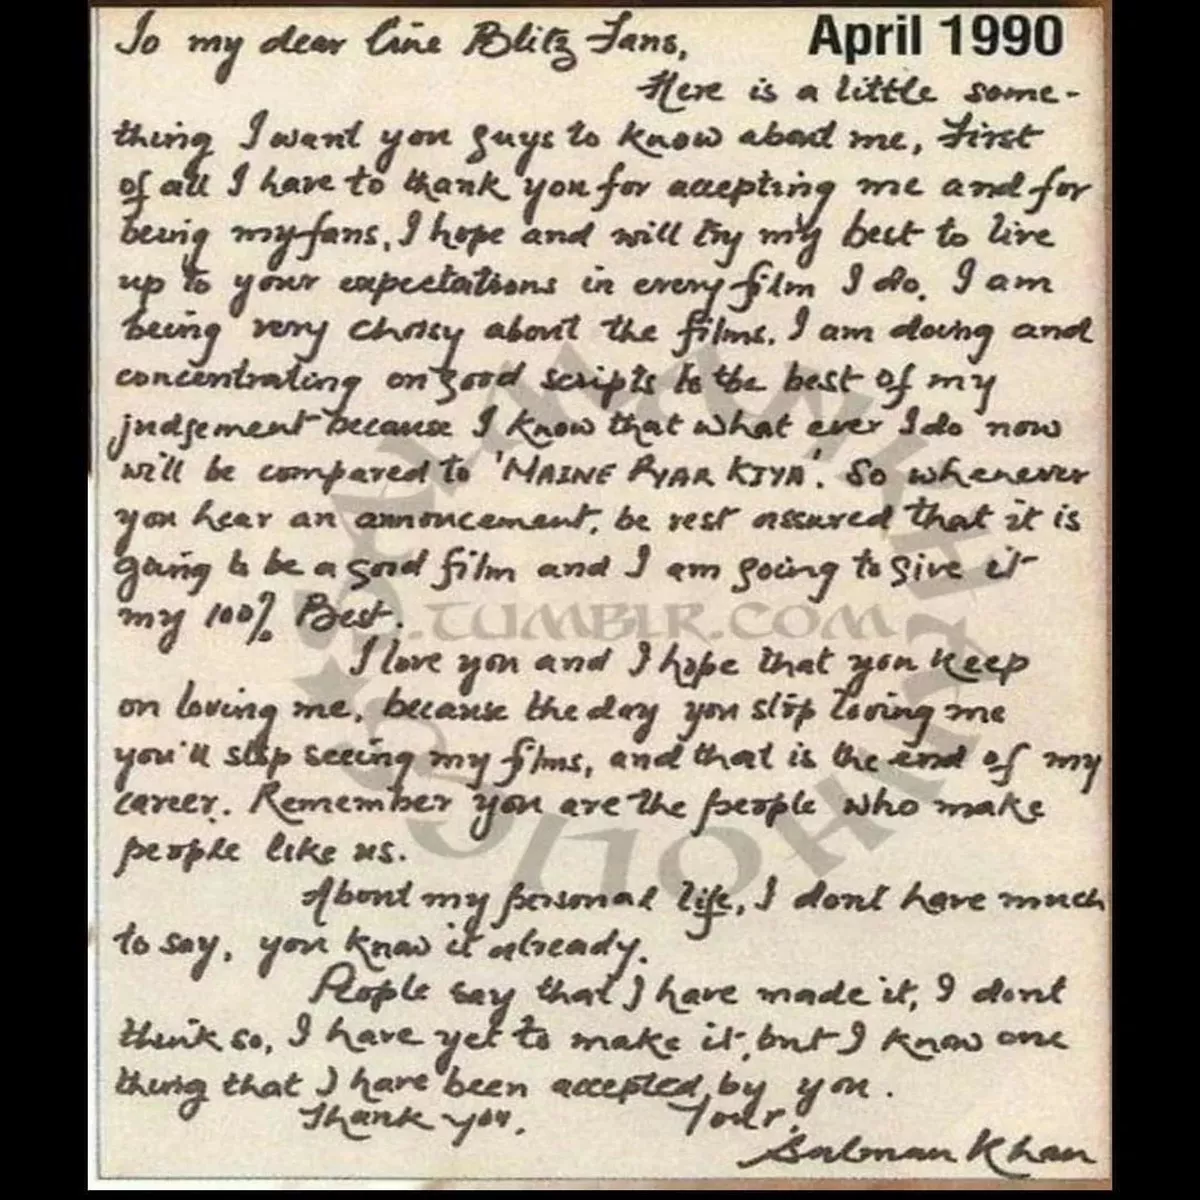 To my dear Cine Blitz Fans,
April 1990
Here is a little some-
thing I want you guys to know about me, First
of all I have to thank you for accepting me and for
being my fans, I hope and will try my best to live
up to your expectations in every film I do. I am
being very choisy about the films. I am doing and
concentrating on good scripts to the best of my
judgement because I know that what ever I do now
will be compared to 'MAINE PYAR KIYA'. So whenever
you hear an annoucement, be rest assured that it is
going to be a good film and I am going to give it
my 100% Best.
.TUMBLR.COM
I love you and I hope that you keep
on loving me, because the day you stop loving me
you'll stop seeing my films, and that is the end of my
career. Remember you are the people who make
people like us.
About my personal life, I dont have much
to say, you know it already.
People say that I have made it, I dont
think so, I have yet to make it, but I know one
thing that I have been accepted by you.
Thank you. Your,
Salman Khan